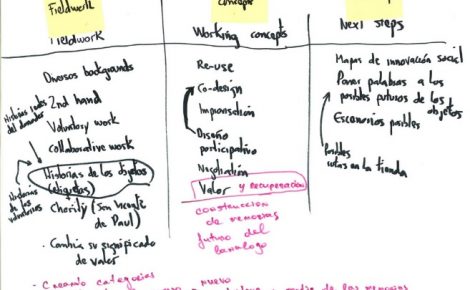 Fieldwork
Fieldwork
Diversos backgrounds
2nd hand
Voluntary work
collaborative work
Historias de los objetos
(etiquetas)
+ Charity (San Vicente
de Paul)
· Cambia su significado
de valor
Historias
del
Historias
de los
voluntarios
Concepts
Working concepts
Re-use
Co-design
Improvisation
Diseño
participativo
Negotiation
Valor y recuperación
construcción
de memorias
futuro del
Next steps
Mapas de innovación social
Poner palabras a los
posibles futuros de los objetos
Escenarios posibles
posibles
rutas en la tienda
· Creando categorías
nuevo
de las memorias